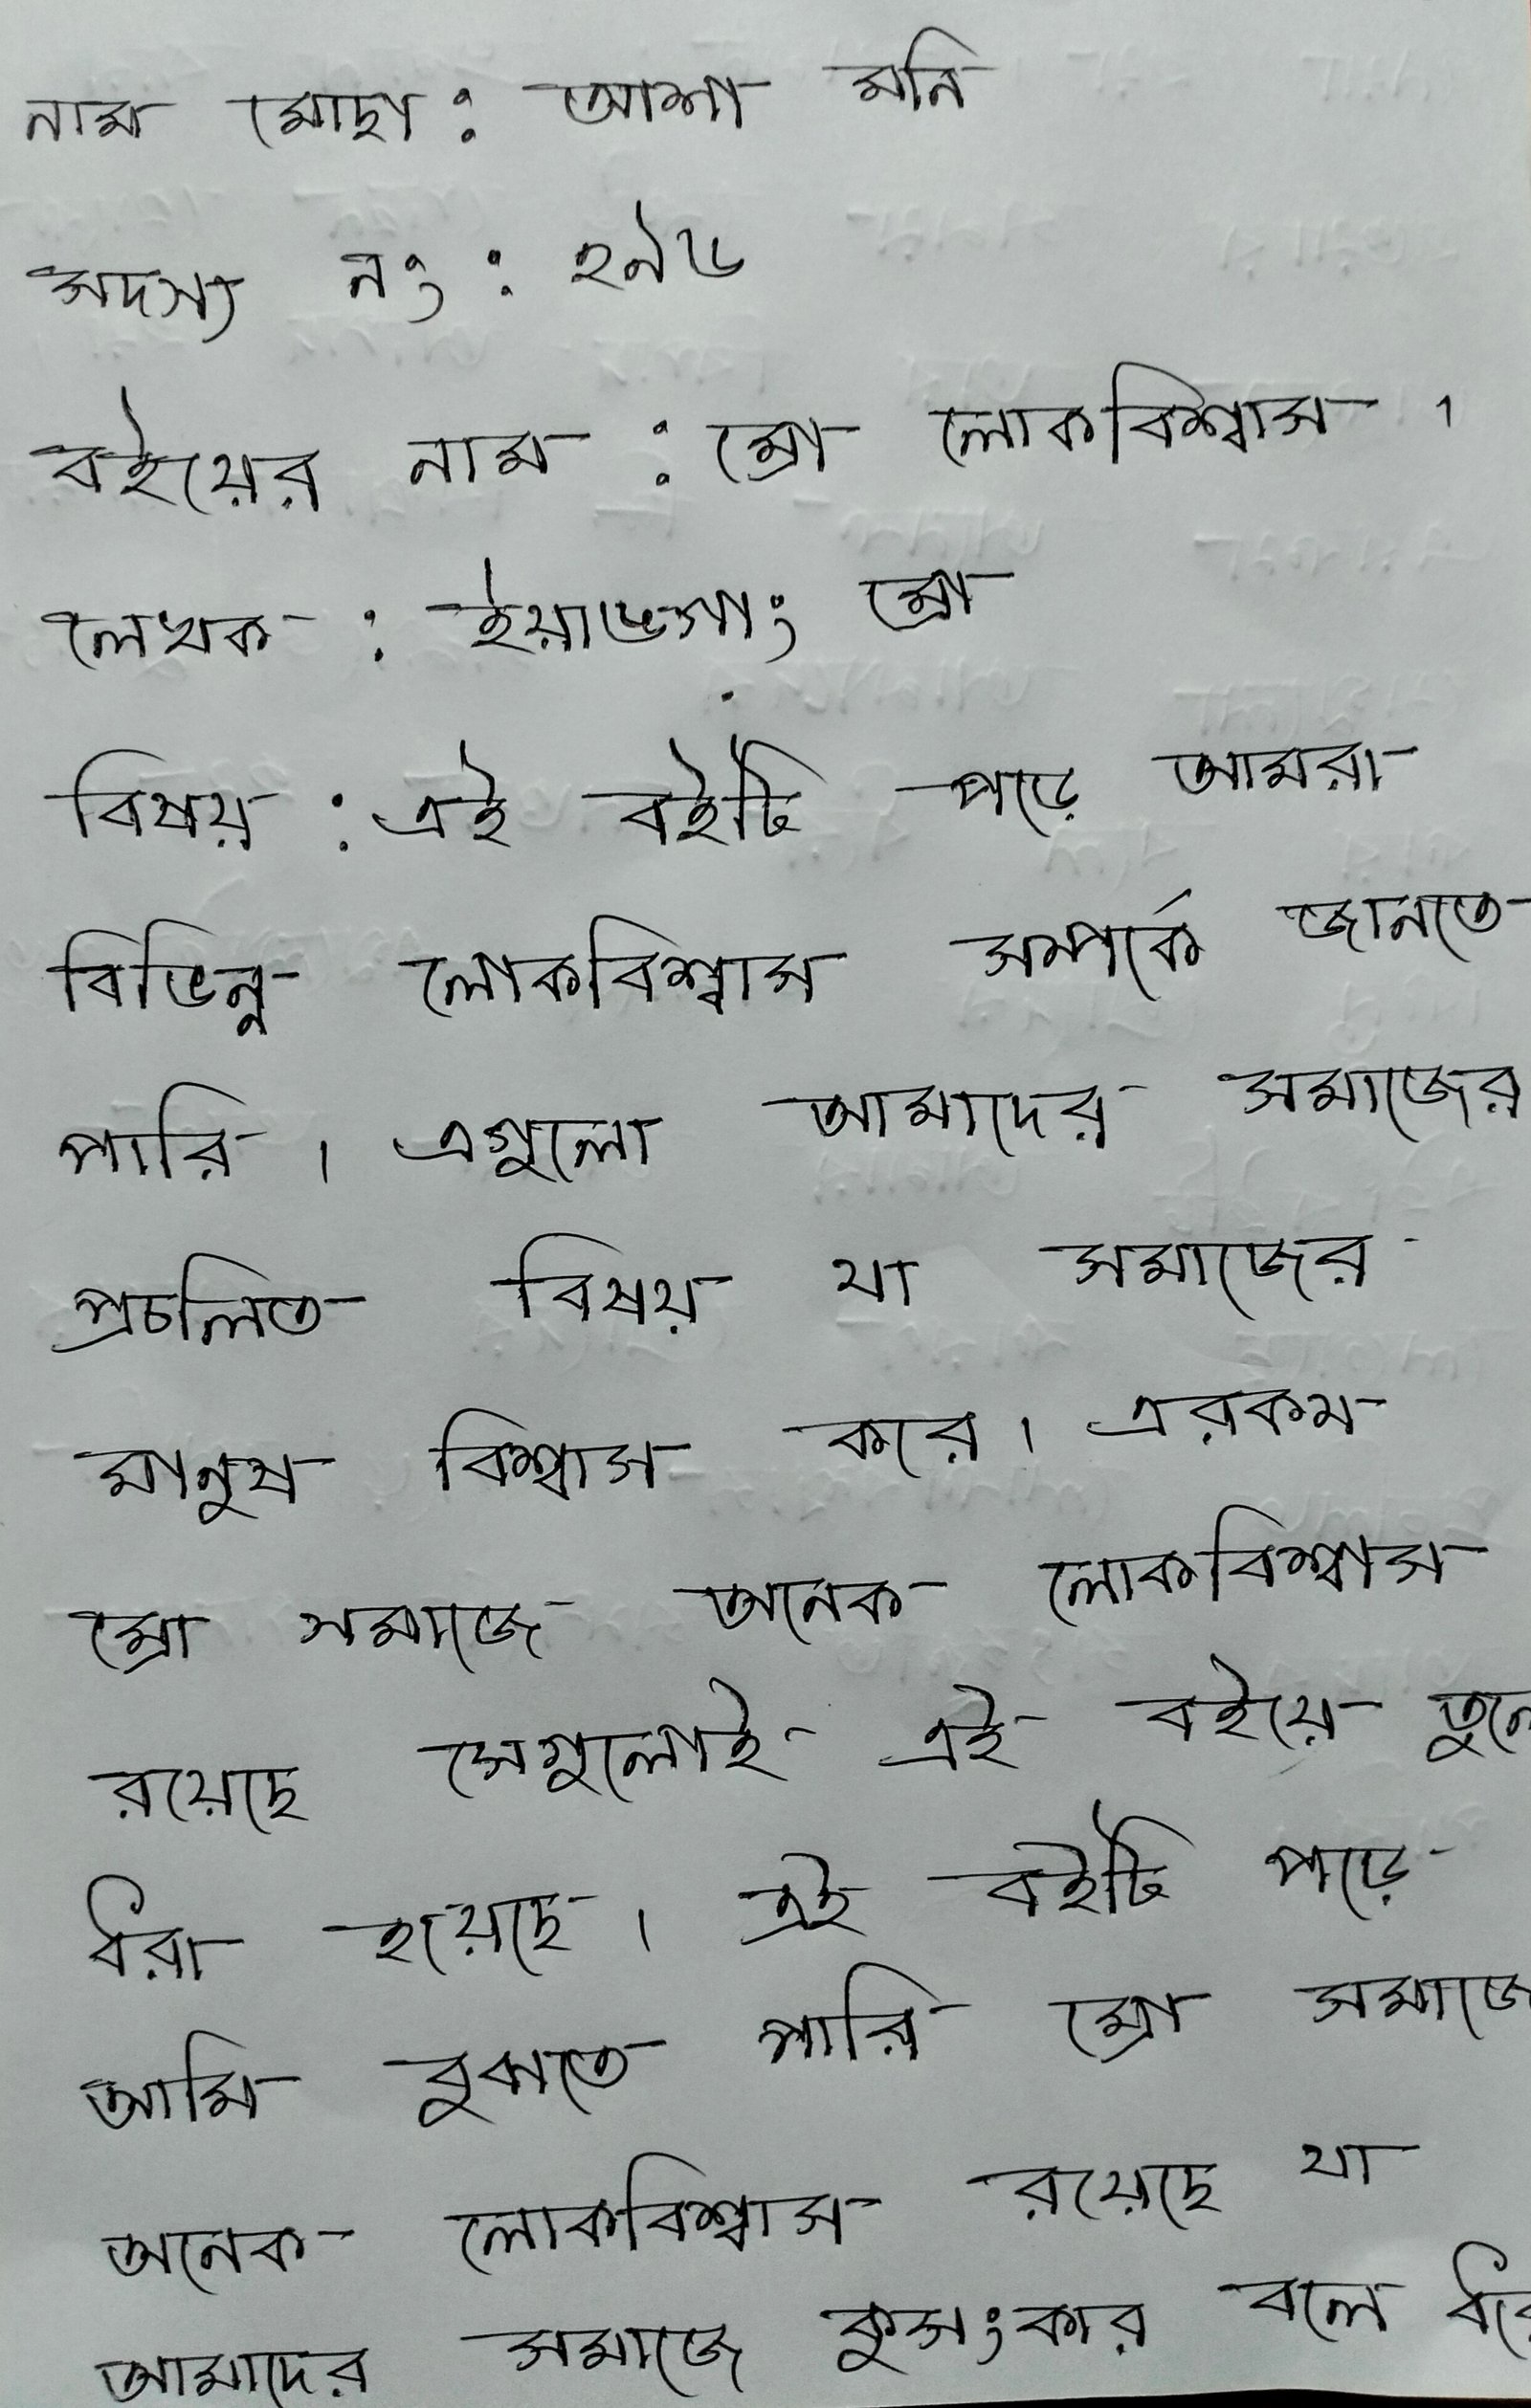 নাম মোছা: আশা মনি
সদস্য নং: ২৯৬
বইয়ের নাম : ম্রো লোকবিশ্বাস ।
লেখক : ইয়াঙসাং ম্রো
বিষয় : এই বইটি পড়ে আমরা
বিভিন্ন লোকবিশ্বাস সম্পর্কে জানতে
পারি । এগুলো আমাদের সমাজের
প্রচলিত বিষয় যা সমাজের
মানুষ বিশ্বাস করে। এরকম
ম্রো সমাজে অনেক লোকবিশ্বাস
রয়েছে সেগুলোই এই বইয়ে তুলে
ধরা হয়েছে । এই বইটি পড়ে
আমি বুঝতে পারি ম্রো সমাজে
অনেক লোকবিশ্বাস রয়েছে যা
আমাদের সমাজে কুসংকার বলে ধরে